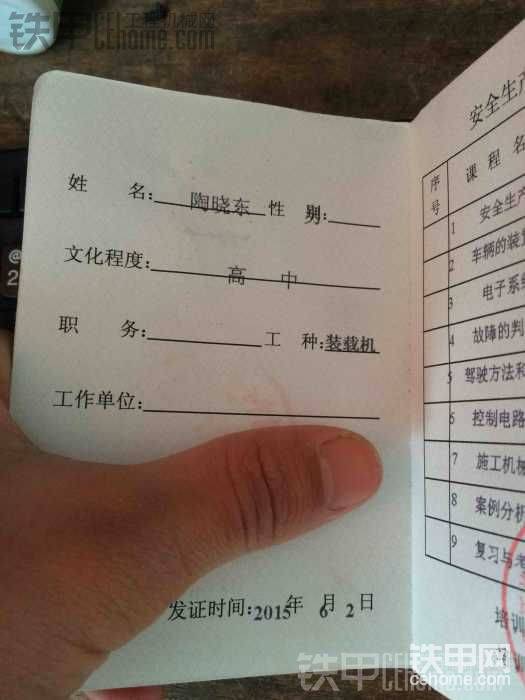 铁甲 工程机械网
cehome.com
姓 名: 陶晓东 性 别:
文化程度: 高 中
职 务: 工 种:装载机
工作单位:
发证时间:2015年 6月 2日
安全生产
序号 课 程 名
1 安全生产
2 车辆的装
3 电子系统
4 故障的判
5 驾驶方法和
6 控制电路
7 施工机械
8 案例分析
9 复习与考
培训
铁甲 工程机械网
cehome.com
铁甲网
cehome.com